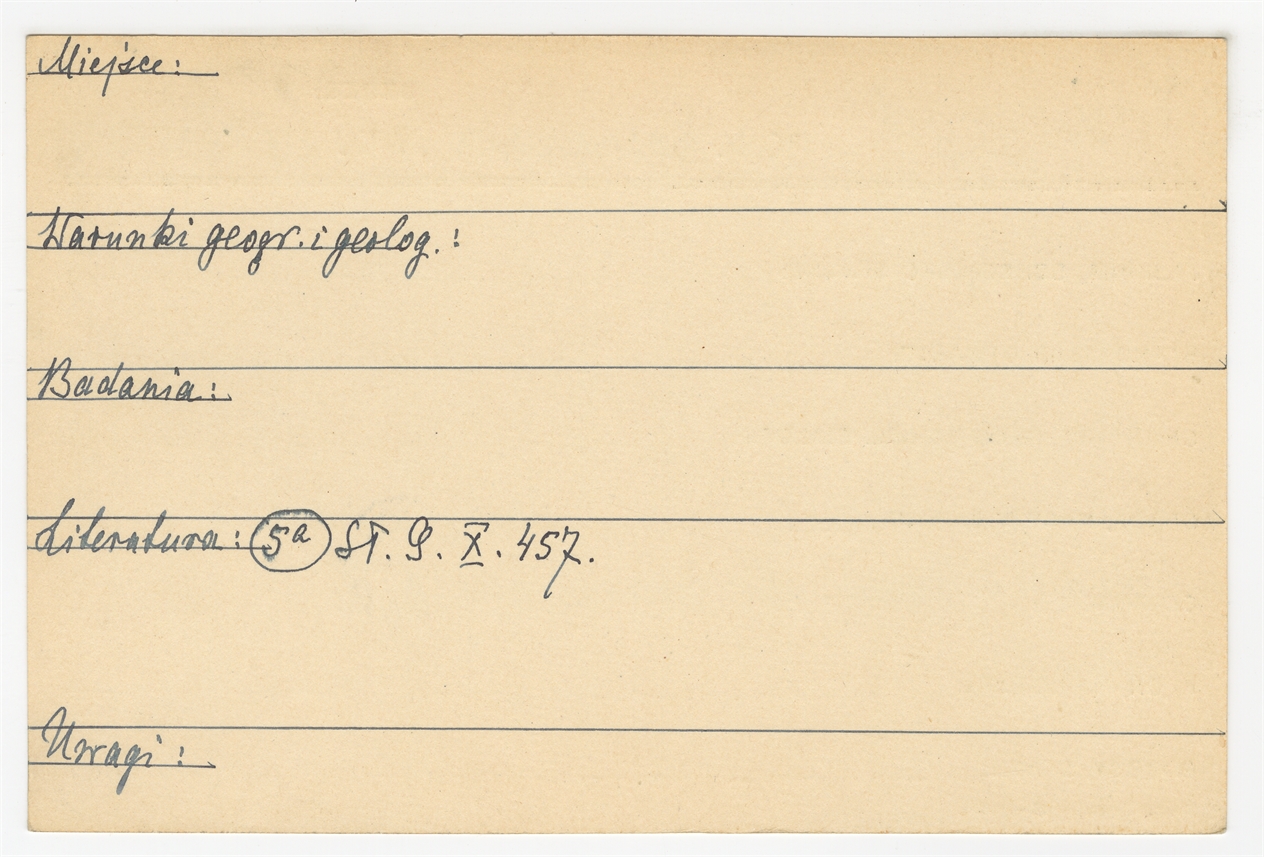 Miejsce:
Warunki geogr. i geolog.:
Badania:
Literatura: 5a ST. G. X. 457.
Uwagi: